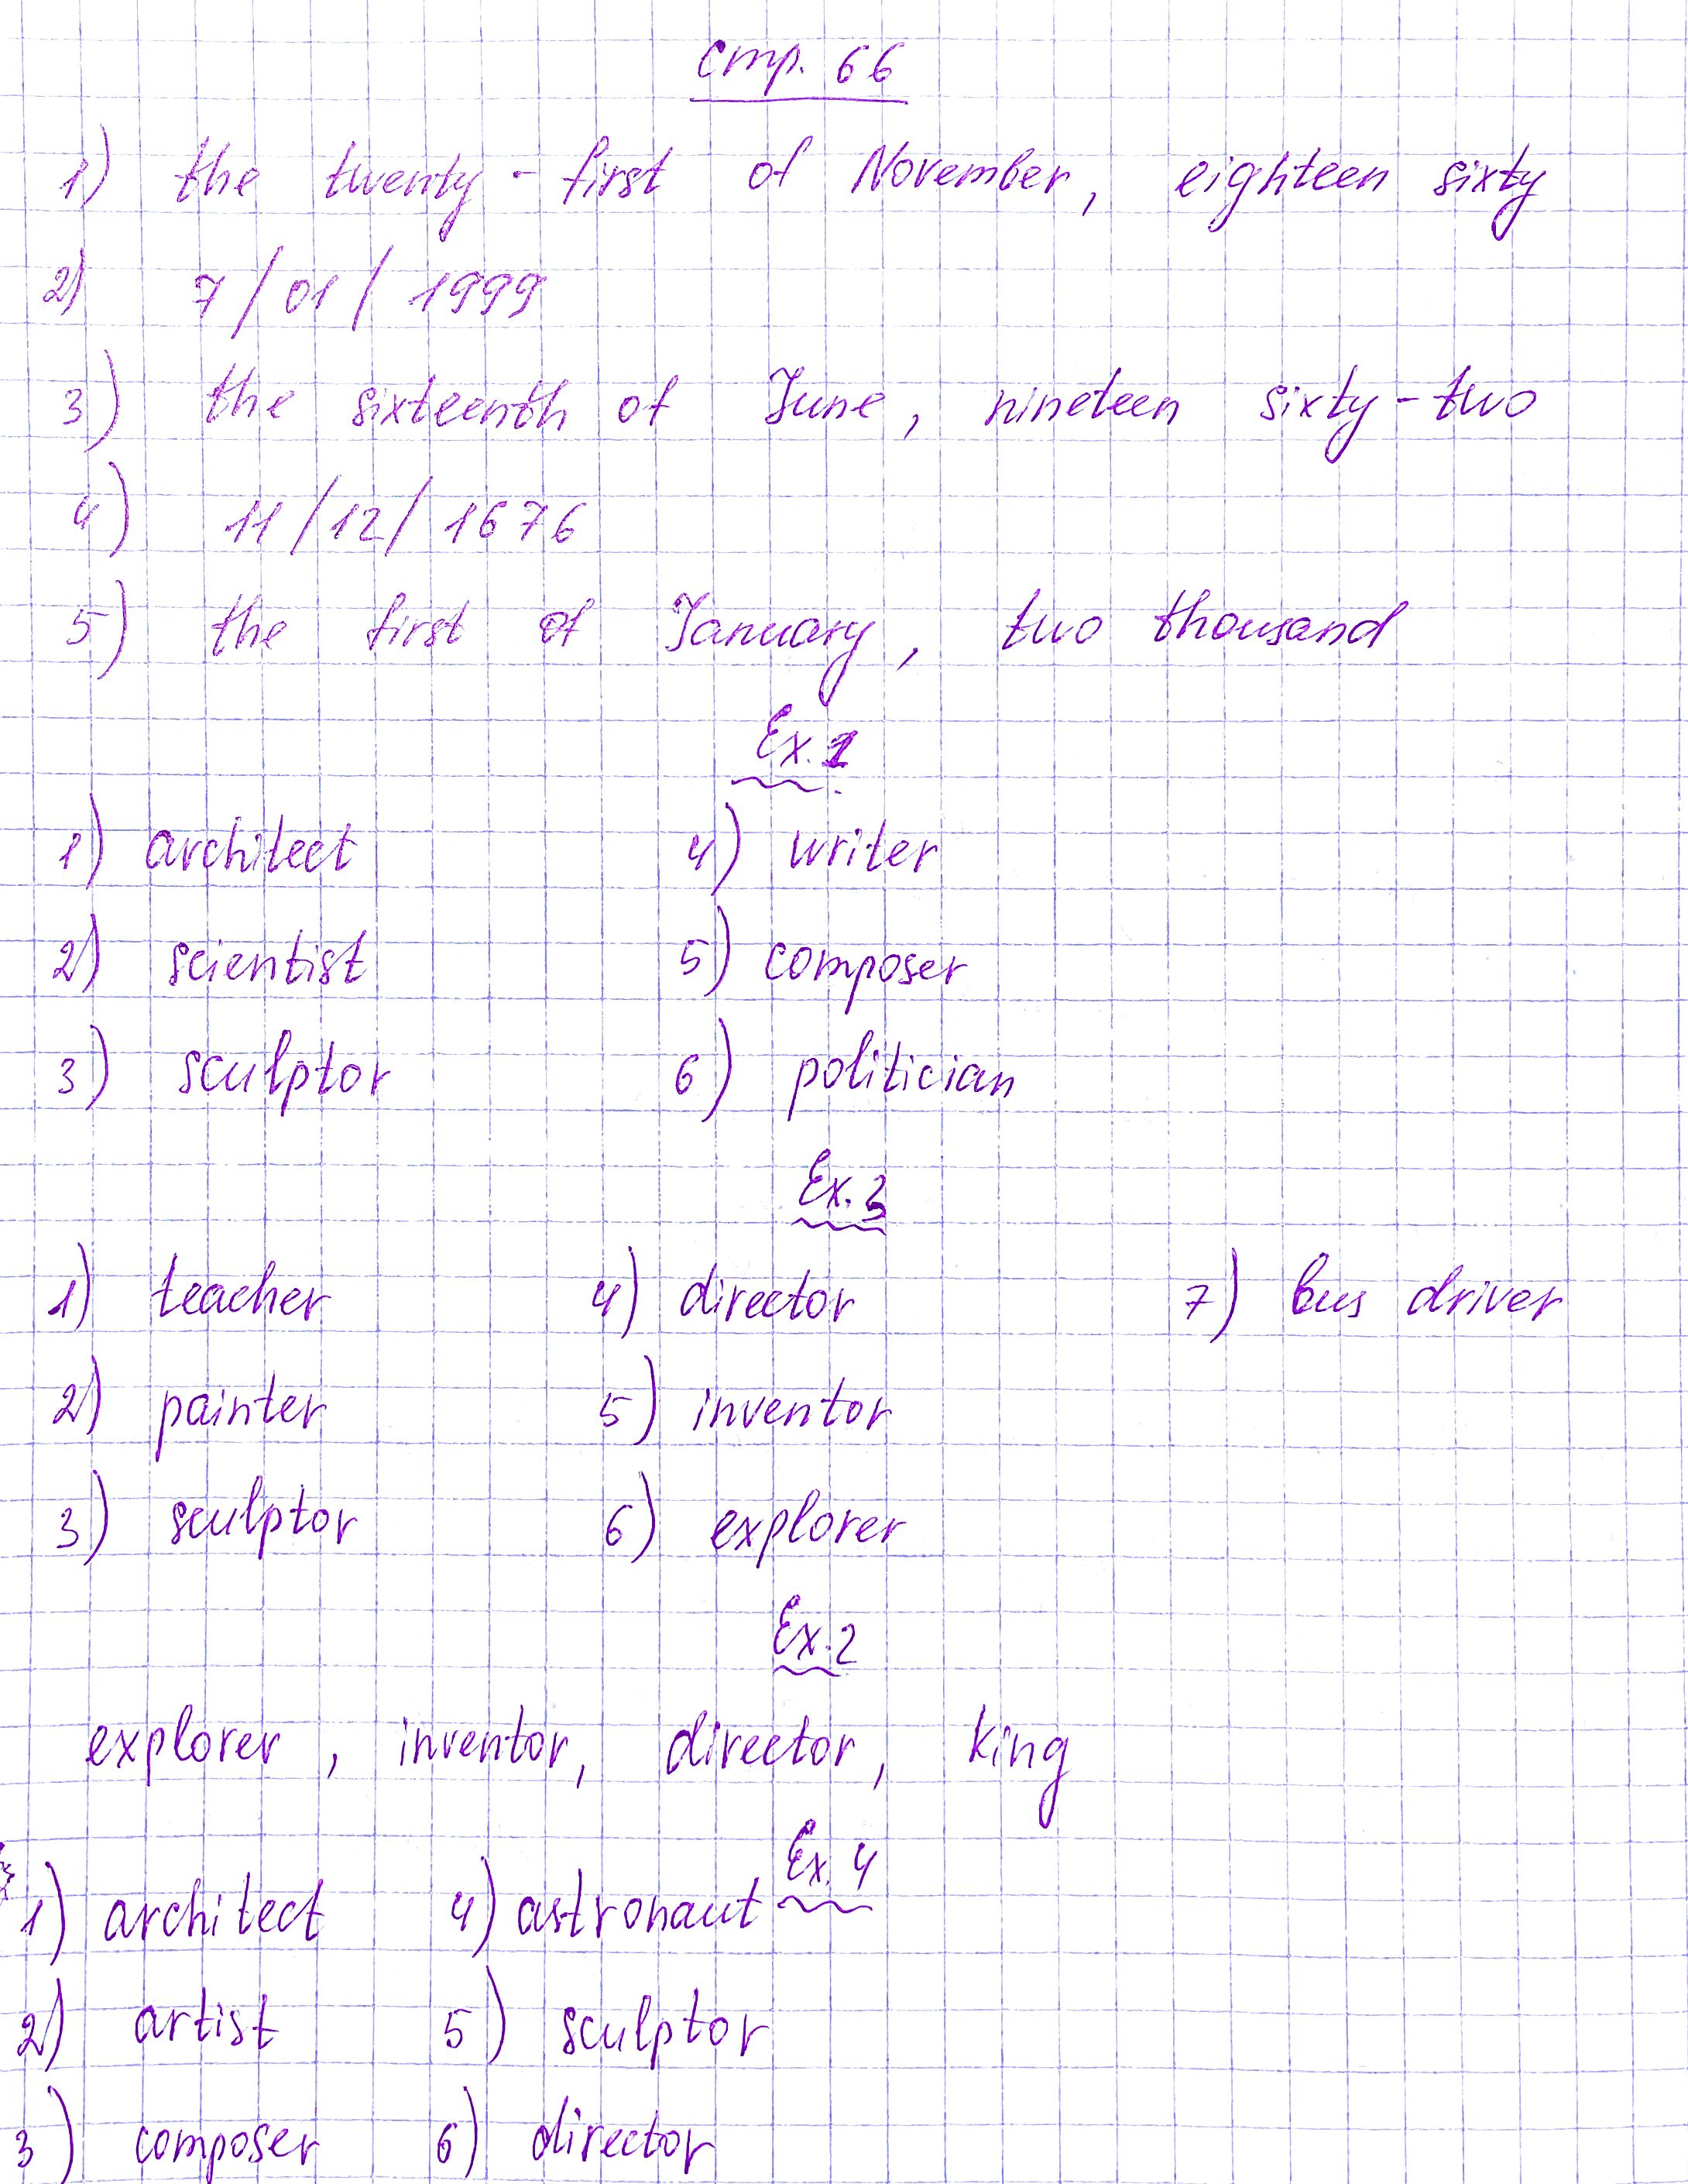 стр. 66
1) the twenty-first of November, eighteen sixty
2) 7/01/1999
3) the sixteenth of June, nineteen sixty-two
4) 11/12/1676
5) the first of January, two thousand
Ex. 1
1) architect 4) writer
2) scientist 5) composer
3) sculptor 6) politician
Ex. 3
1) teacher 4) director 7) bus driver
2) painter 5) inventor
3) sculptor 6) explorer
Ex. 2
explorer, inventor, director, king
Ex. 4
1) architect 4) astronaut
2) artist 5) sculptor
3) composer 6) director